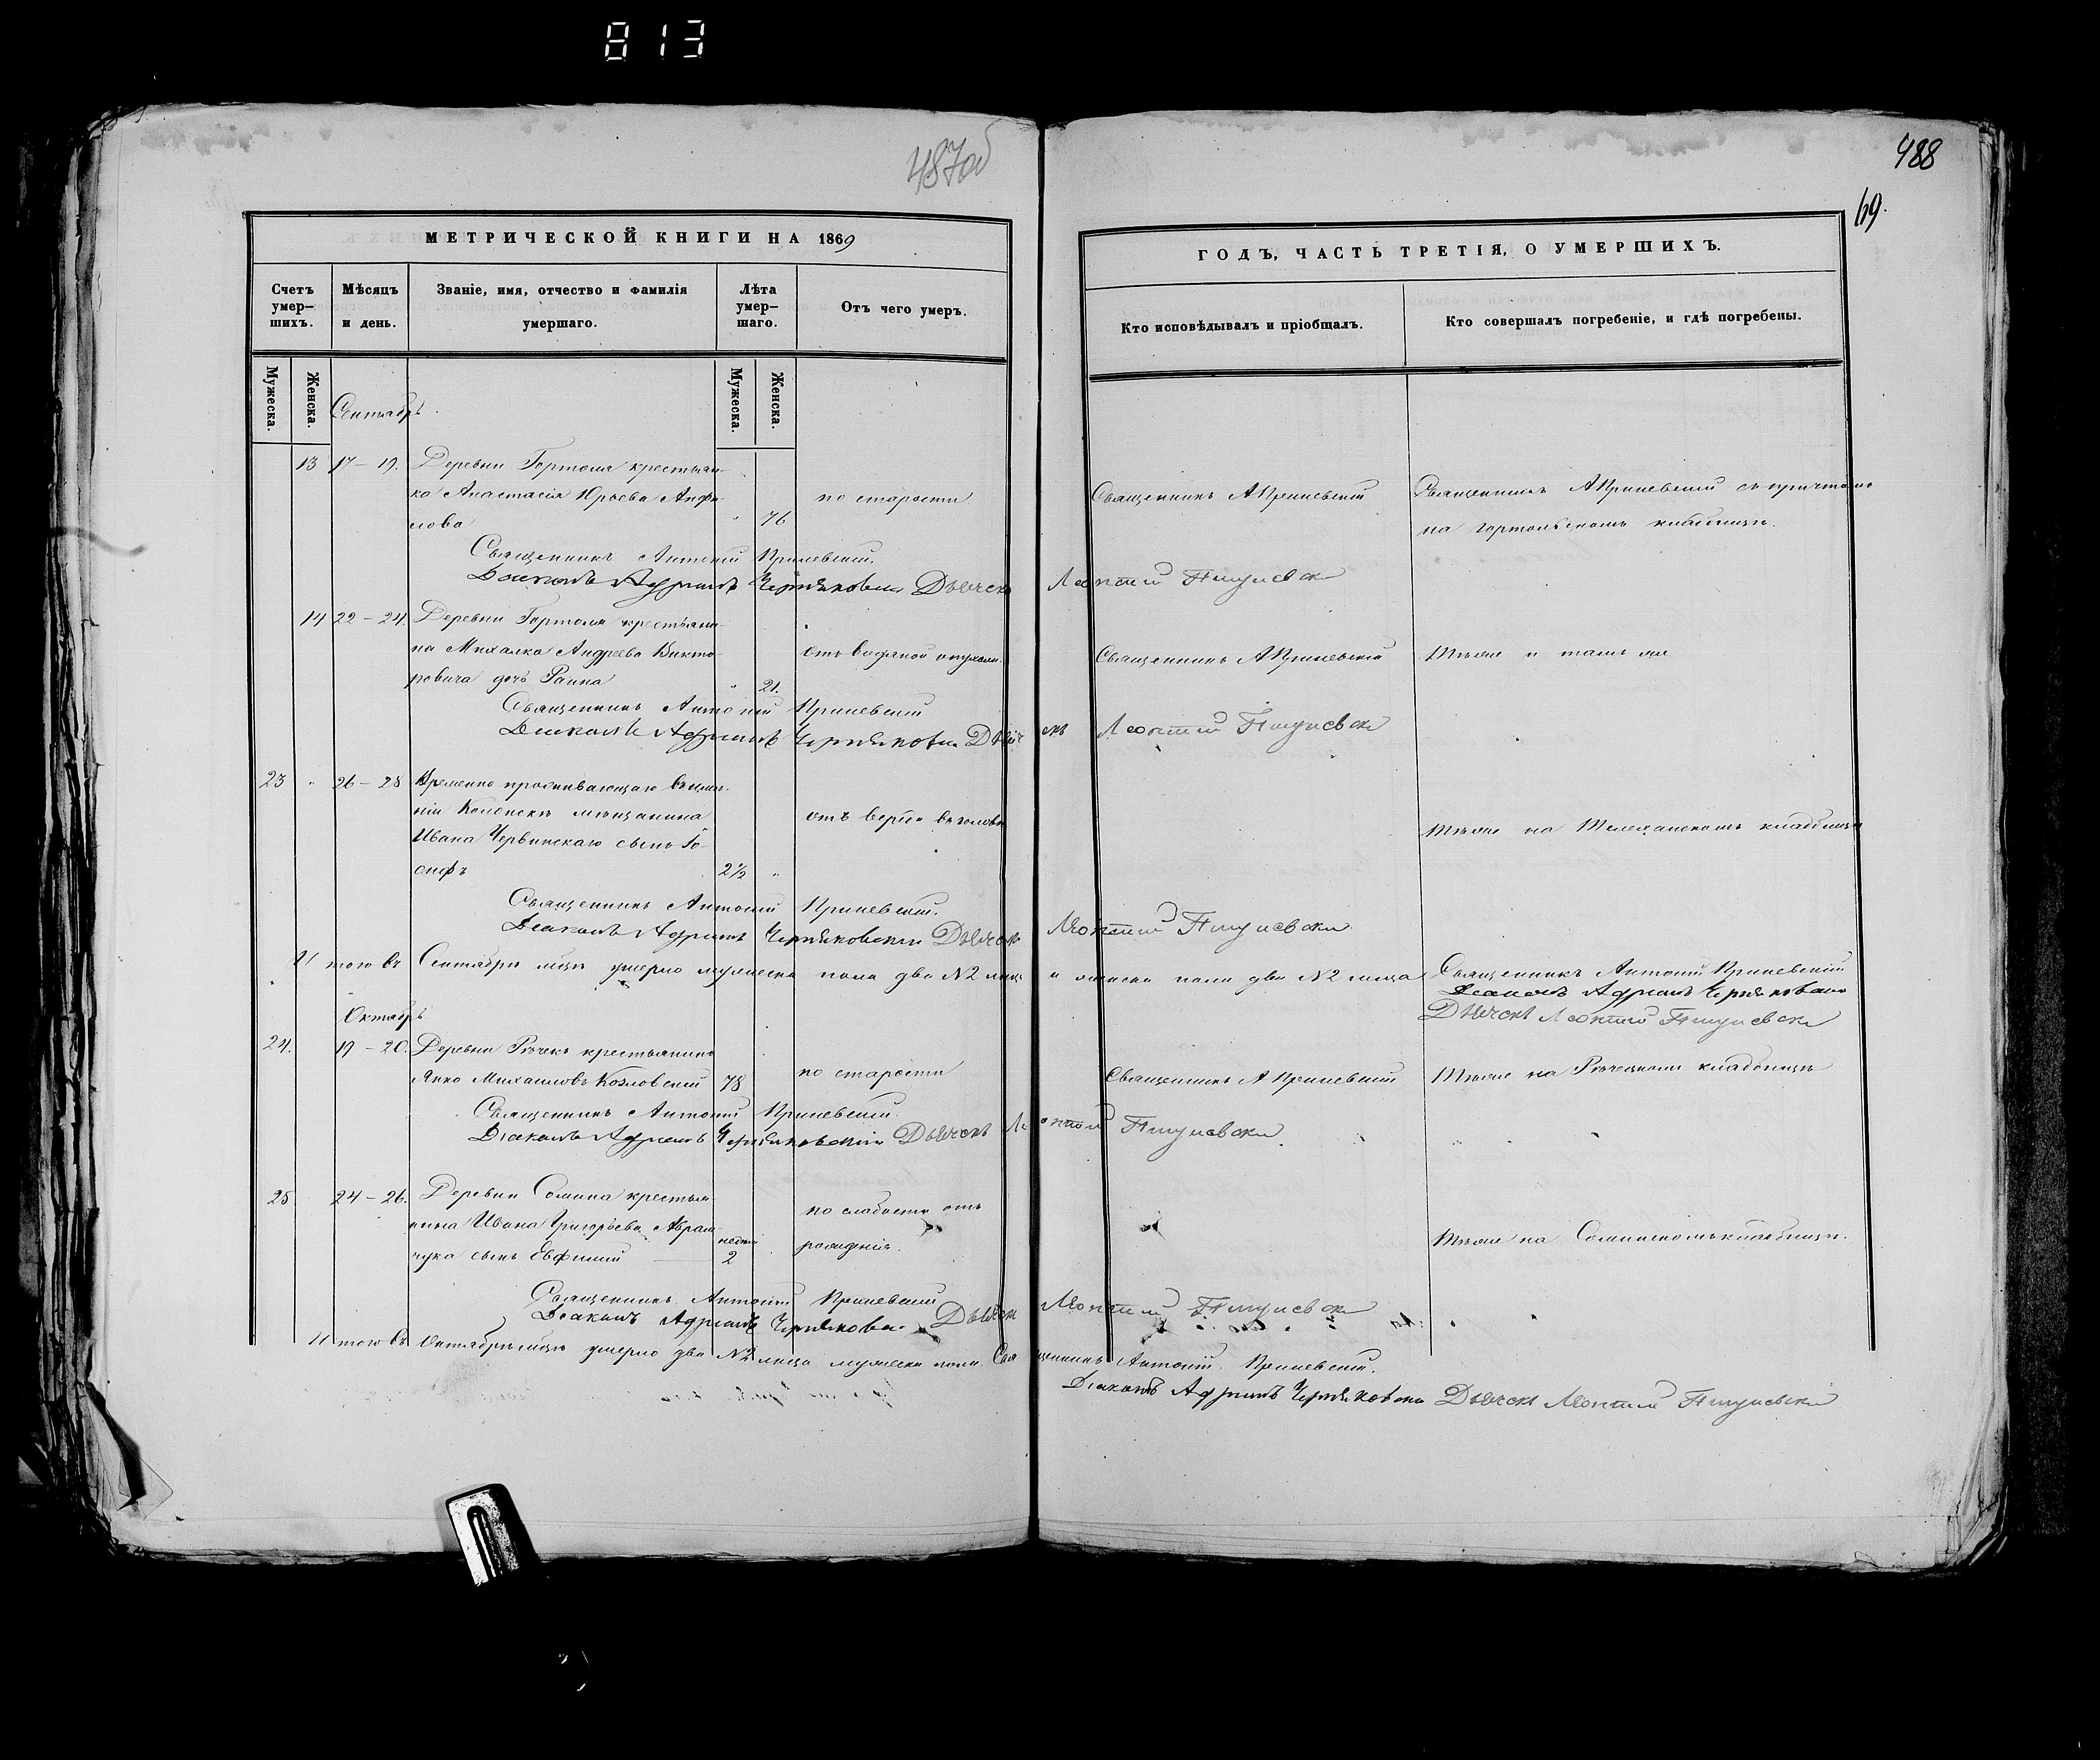 813
487об
488
69.
МЕТРИЧЕСКОЙ КНИГИ НА 1869
ГОДЪ, ЧАСТЬ ТРЕТІЯ, О УМЕРШИХЪ.
Счетъ умер-
шихъ.
Мѣсяцъ
и день.
Званіе, имя, отчество и фамилія
умершаго.
Лѣта
умер-
шаго.
Отъ чего умеръ.
Кто исповѣдывалъ и пріобщалъ.
Кто совершалъ погребеніе, и гдѣ погребены.
Мужеска.
Женска.
Мужеска.
Женска.
Сентябрь
13 17-19. Деревни Гортоля крестьян-
ка Анастасія Юрьева Анфи-
лова
76
по старости
Священникъ А Криневскій
Священникъ А Криневскій съ причтомъ
на Гортольскомъ кладбищѣ.
Священникъ Антоній Криневскій.
Діаконъ Адріанъ Черняковскій Дьячекъ Леонтій
14 22-24. Деревни Гортоля крестьяни-
на Михалка Андреева Викто-
ровича дочь Раина
21.
отъ водяной опухоли.
Священникъ А Криневскій
Тѣмже и тамъ же
Священникъ Антоній Криневскій
Діаконъ Адріанъ Черняковскій Дьячекъ Леонтій
23 " 26-28 Временно проживающаго въ имѣ-
ніи Колонскъ мѣщанина
Ивана Червинскаго сынъ Іо-
сифъ
2½ "
отъ вереда въ головѣ
Тѣмже на Телеханскомъ кладбищѣ
Священникъ Антоній Криневскій.
Діаконъ Адріанъ Черняковскій Дьячекъ Леонтій
Итого въ Сентябрѣ мцѣ умерло мужеска пола два №2 лица и женска пола два №2 лица
Священникъ Антоній Криневскій
Діаконъ Адріанъ Черняковскій
Дьячекъ Леонтій
Октябрь
24. 19-20. Деревни Рѣчекъ крестьянинъ
Янко Михаиловъ Козловскій
78
по старости
Священникъ А Криневскій
Тѣмже на Рѣчецкомъ кладбищѣ
Священникъ Антоній Криневскій.
Діаконъ Адріанъ Черняковскій Дьячекъ Леонтій
25 24-26. Деревни Сомина крестья-
нина Ивана Григорьева Абрам-
чука сынъ Евфимій
недѣли
2
по слабости отъ
рожденія.
Тѣмже на Соминскомъ кладбищѣ.
Священникъ Антоній Криневскій
Діаконъ Адріанъ Черняковскій Дьячекъ Леонтій
Итого въ Октябрѣ мцѣ умерло два №2 лица мужеска пола. Священникъ Антоній Криневскій.
Діаконъ Адріанъ Черняковскій Дьячекъ Леонтій